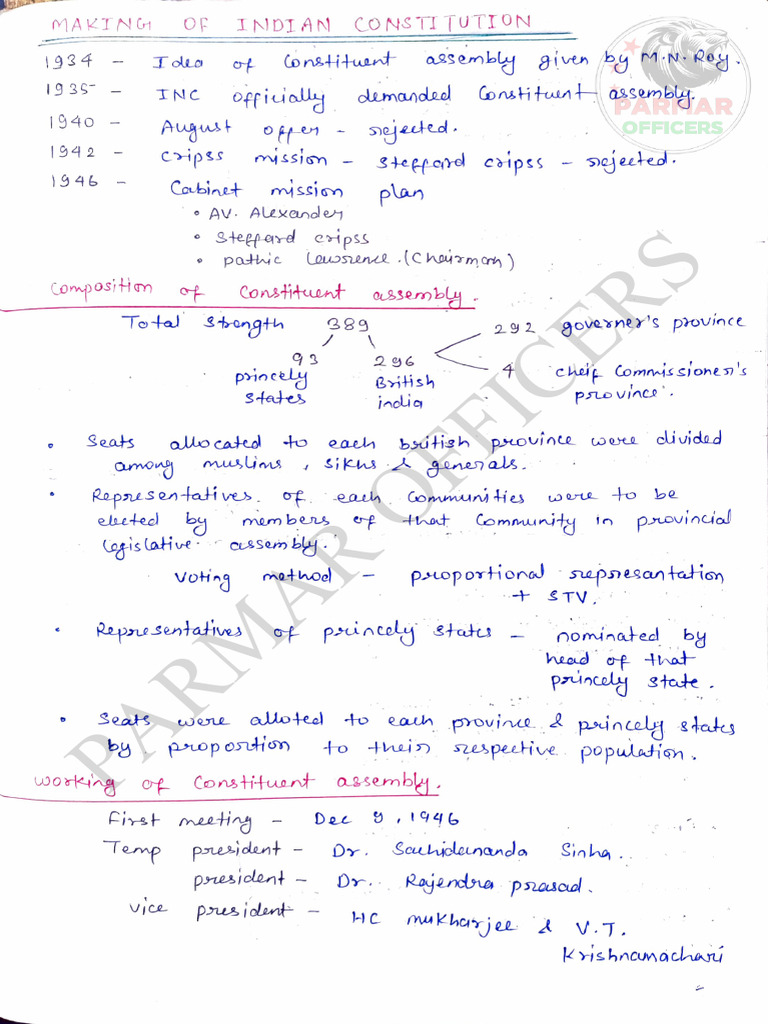 MAKING OF INDIAN CONSTITUTION
1934 - Idea of Constituent assembly given by M.N. Roy.
1935 - INC officially demanded Constituent assembly.
PARMAR
OFFICERS
1940 - August offer - rejected.
1942 - Cripss mission - Steffard cripss - rejected.
1946 - Cabinet mission plan
• AV. Alexander
• Steffard cripss
• pathic lawrence. (Chairman)
Composition of Constituent assembly.
Total strength 389
292 governer's province
93 296
4 cheif Commissioner's province.
princely states
British india
• Seats allocated to each british province were divided
among muslims, sikhs & generals.
• Representatives of each Communities were to be
elected by members of that Community in provincial
legislative assembly.
Voting method - proportional represantation
+ STV.
• Representatives of princely states - nominated by
head of that
princely state.
• Seats were alloted to each province & princely states
by proportion to their respective population.
PARMAR OFFICERS
Working of Constituent assembly.
First meeting - Dec 9, 1946
Temp president - Dr. Sachidananda Sinha.
president - Dr. Rajendra prasad.
Vice president - HC mukharjee & V.T.
Krishnamachari